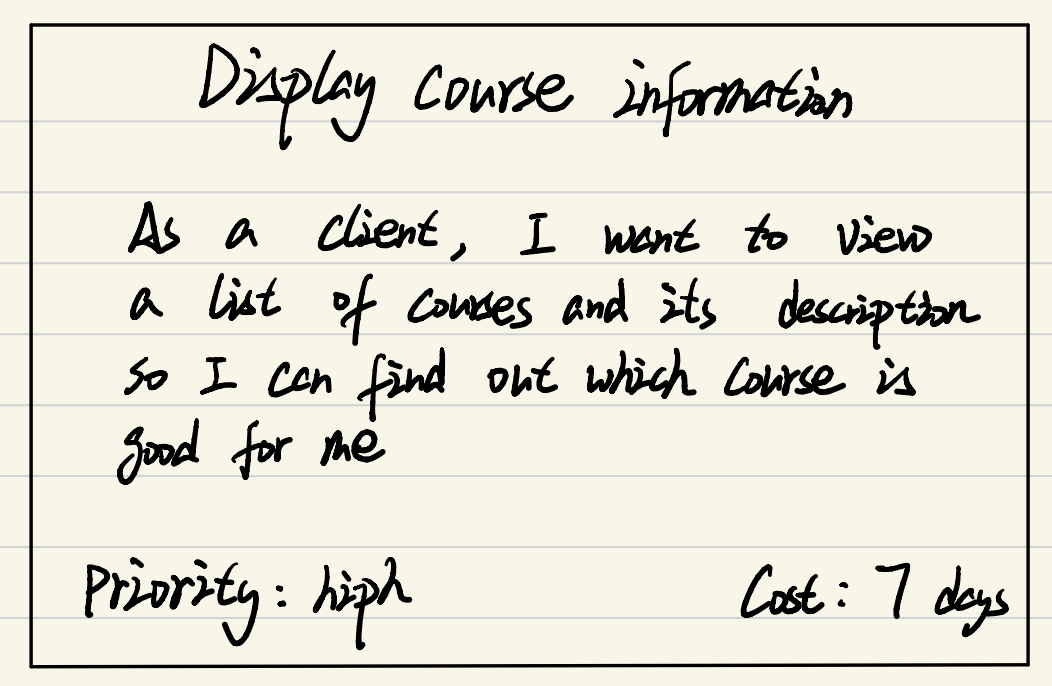 Display course information
As a client, I want to view
a list of courses and its description
so I can find out which course is
good for me
Priority: high
Cost: 7 days